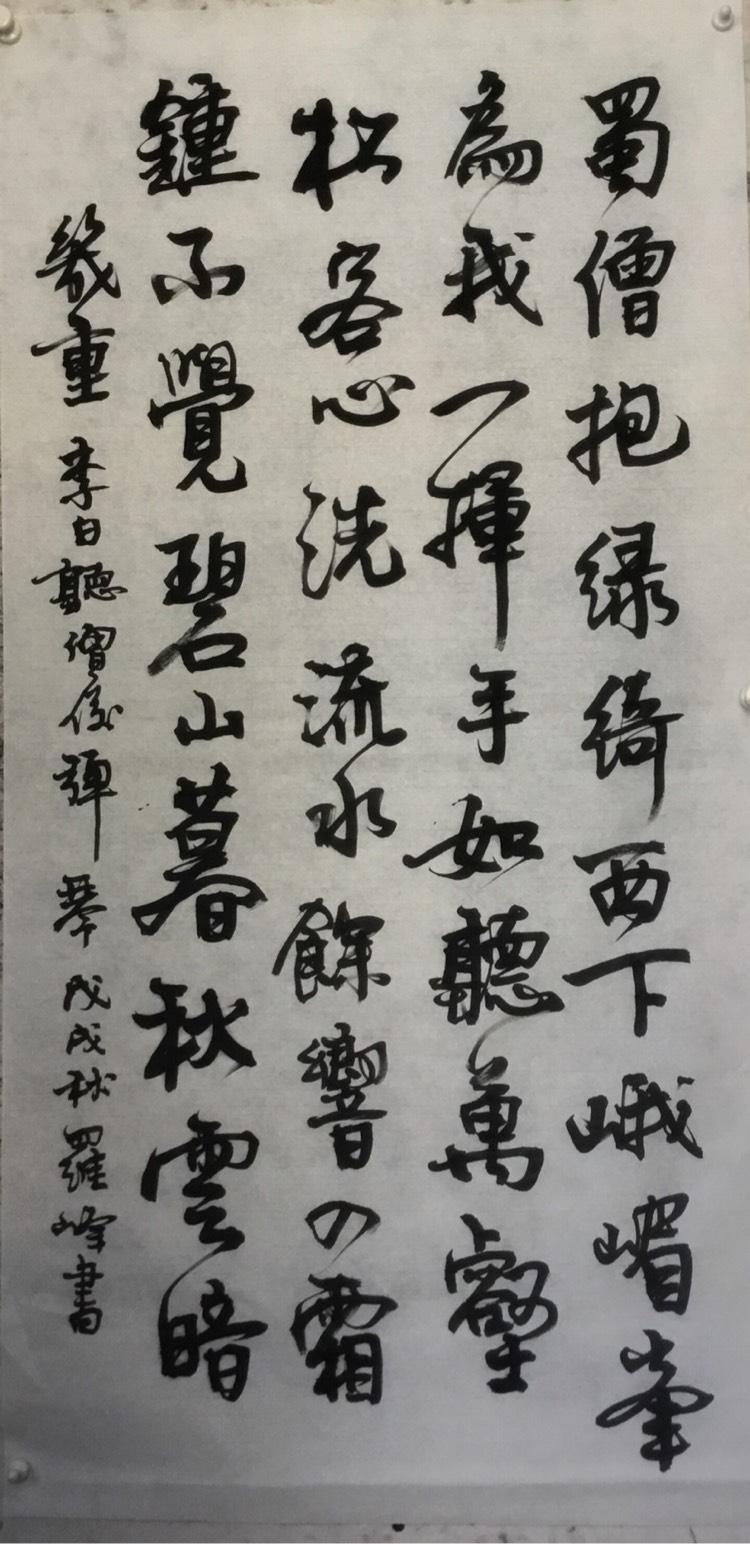 蜀僧抱绿绮西下峨嵋峯
為我一揮手如聽萬壑
松客心洗流水餘響入霜
鍾不覺碧山暮秋雲暗
幾重 李白聽僧俊彈琴 戊戌秋羅峰書